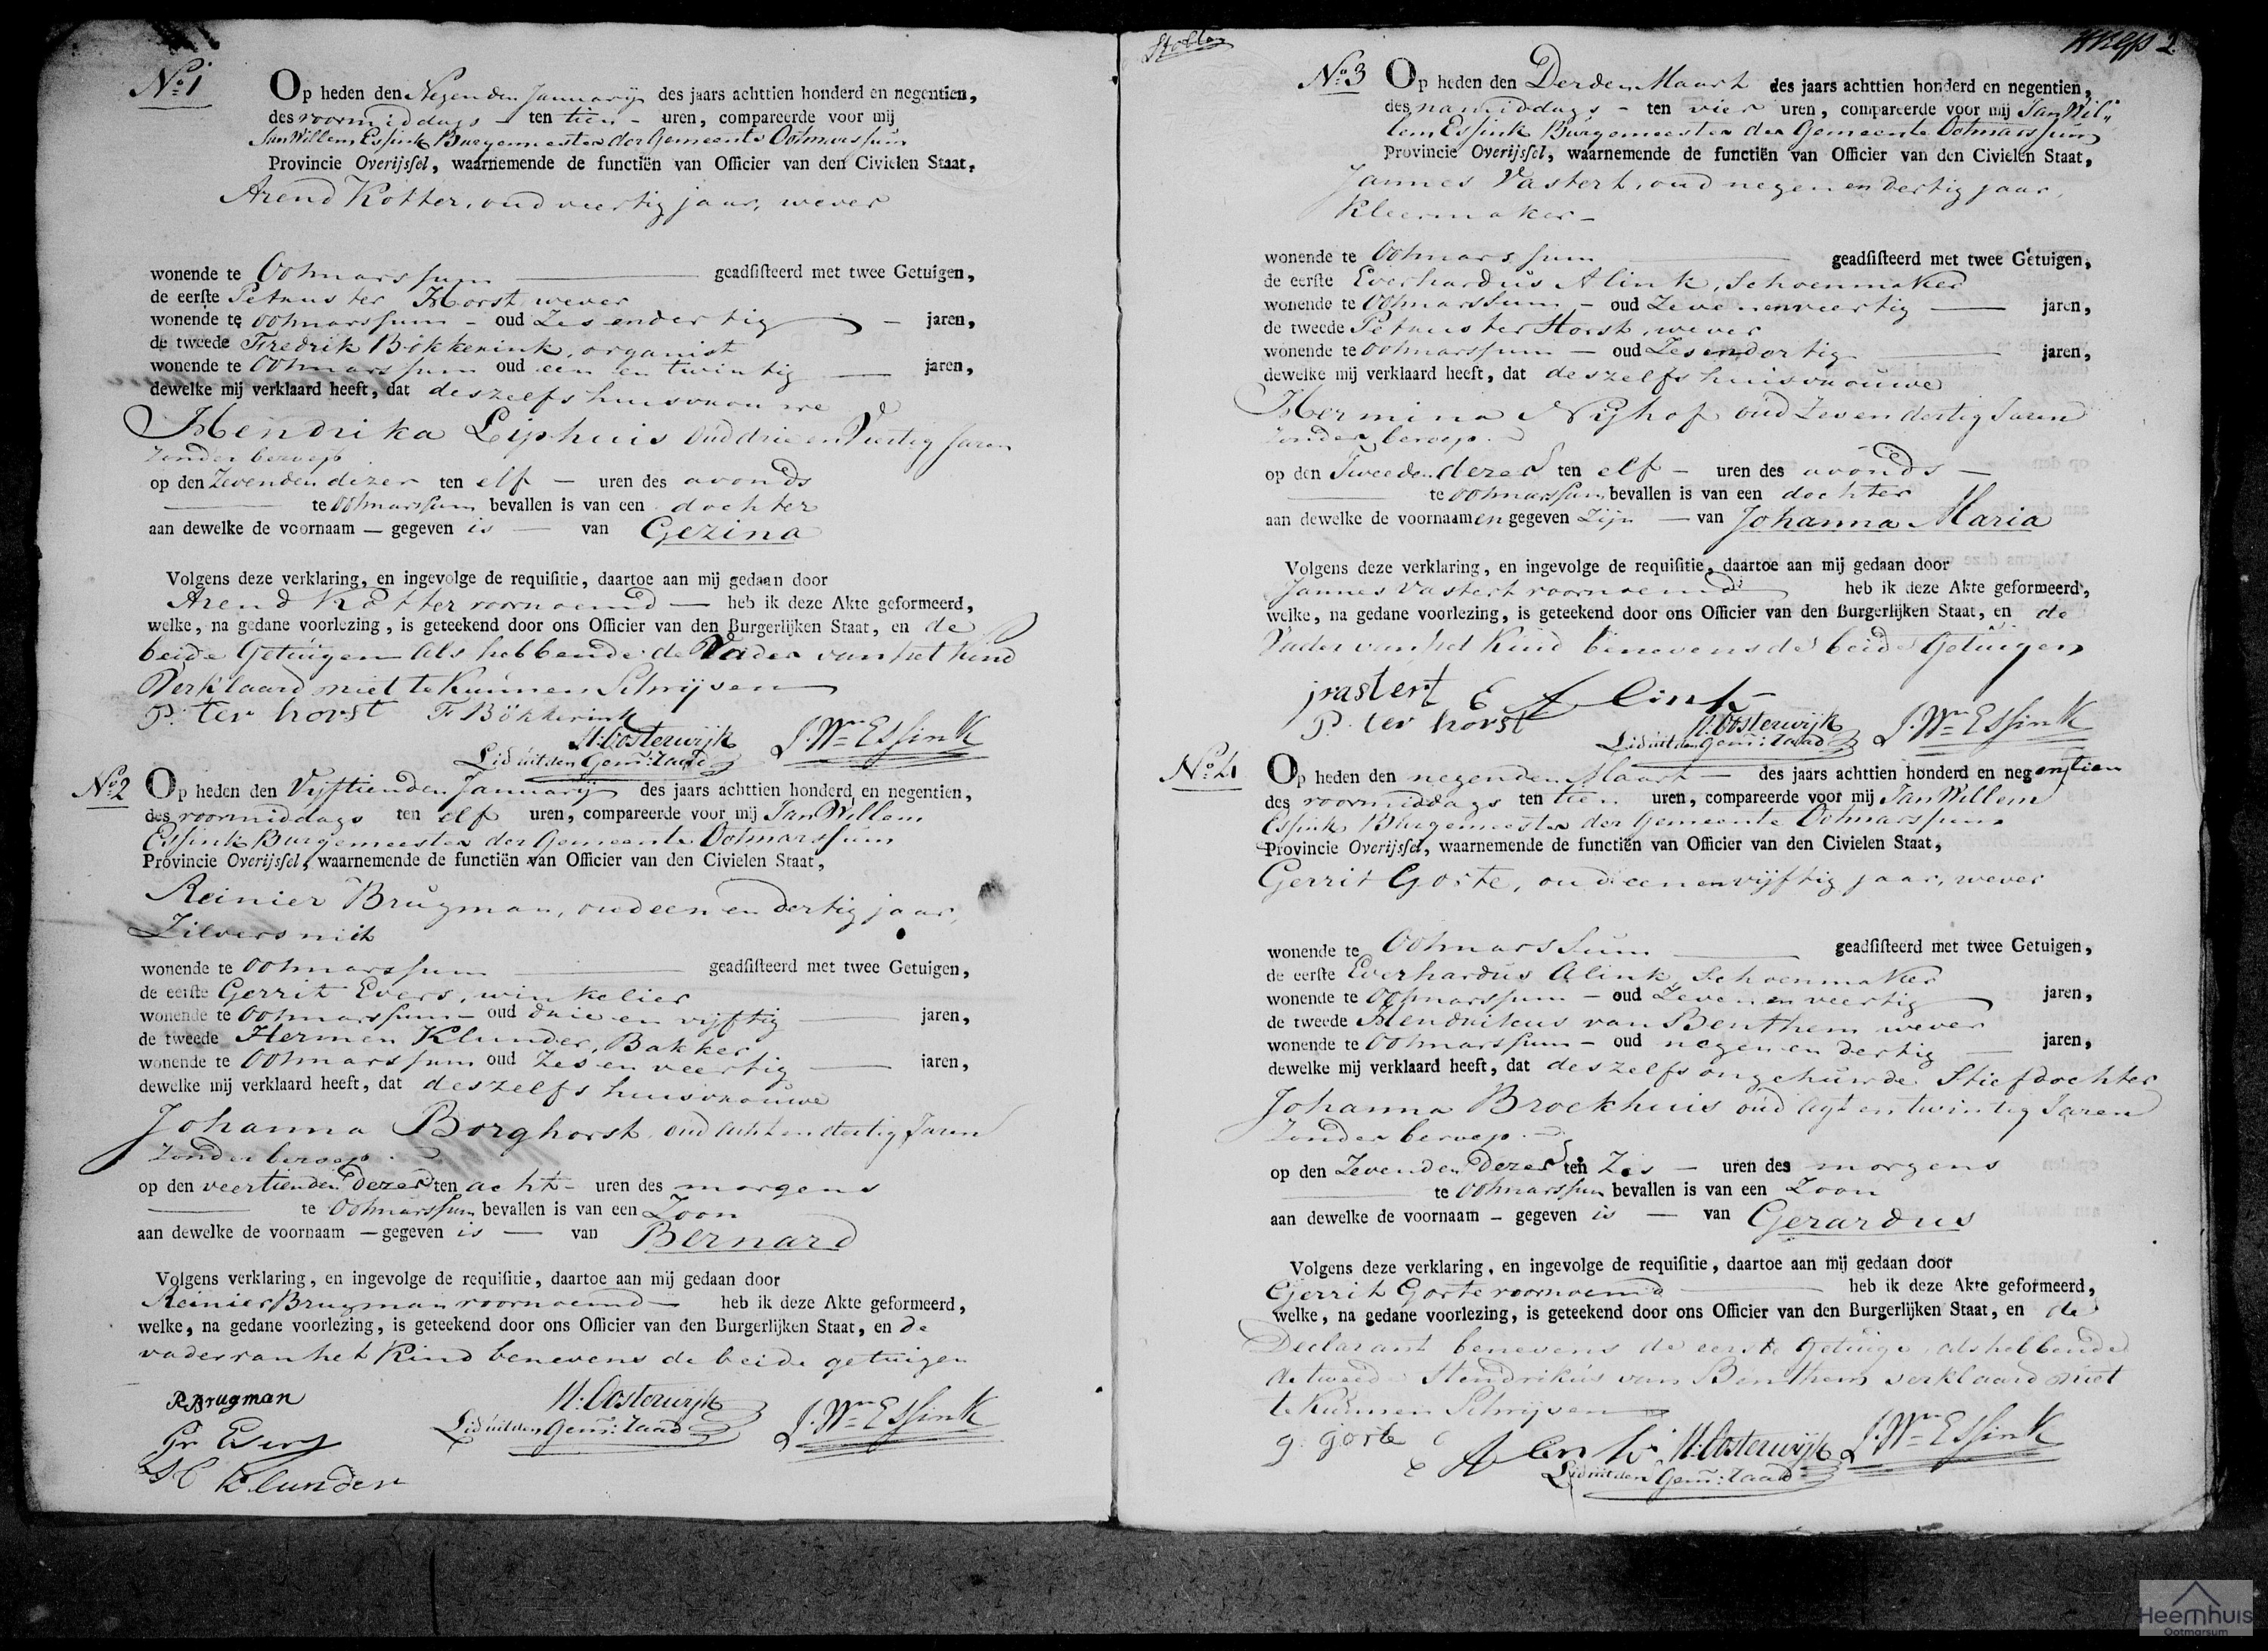 No 1
Op heden den Negenden Januarij des jaars achttien honderd en negentien,
des voormiddags - ten tien - uren, compareerde voor mij
Jan Willem Essink Burgemeester der Gemeente Ootmarssum
Provincie Overijssel, waarnemende de functiën van Officier van den Civielen Staat,
Arend Kotter, oud veertig jaar, wever
wonende te Ootmarssum geadsisteerd met twee Getuigen,
de eerste Petrus ter Horst, wever
wonende te Ootmarssum - oud Zesendertig - jaren,
de tweede Fredrik Bökkerink, organist
wonende te Ootmarssum oud een en twintig - jaren,
dewelke mij verklaard heeft, dat deszelfs huisvrouwe
Hendrika Liphuis oud drie en Veertig Jaren
Zonder beroep
op den Zevenden dezer ten elf - uren des avonds
te Ootmarssum bevallen is van een dochter
aan dewelke de voornaam - gegeven is - van Gezina
Volgens deze verklaring, en ingevolge de requisitie, daartoe aan mij gedaan door
Arend Kotter voornoemd - heb ik deze Akte geformeerd,
welke, na gedane voorlezing, is geteekend door ons Officier van den Burgerlijken Staat, en de
beide Getuigen Als hebbende de Vader van het Kind
Verklaard niet te Kunnen Schrijven
P. ter horst F Bökkerink
H: Oosterwijk J. Wm Essink
Lid uit den Gem: Raad
No 2
Op heden den Vijftienden Januarij des jaars achttien honderd en negentien,
des voormiddags ten elf uren, compareerde voor mij Jan Willem
Essink Burgemeester der Gemeente Ootmarssum
Provincie Overijssel, waarnemende de functiën van Officier van den Civielen Staat,
Reinier Brugman, oud een en dertig jaar,
Zilversmit
wonende te Ootmarssum geadsisteerd met twee Getuigen,
de eerste Gerrit Evers, winkelier
wonende te Ootmarssum - oud drie en vijftig jaren,
de tweede Hermen Klunder, Bakker
wonende te Ootmarssum oud Zes en veertig jaren,
dewelke mij verklaard heeft, dat deszelfs huisvrouwe
Johanna Borghorst, oud acht en dertig Jaren
Zonder beroep.
op den veertienden dezer ten acht - uren des morgens
te Ootmarssum bevallen is van een Zoon
aan dewelke de voornaam - gegeven is - van Bernard
Volgens verklaring, en ingevolge de requisitie, daartoe aan mij gedaan door
Reinier Brugman voornoemd - heb ik deze Akte geformeerd,
welke, na gedane voorlezing, is geteekend door ons Officier van den Burgerlijken Staat, en de
vader van het Kind benevens de beide getuigen
R Brugman
H: Oosterwijk J. Wm Essink
Lid uit den Gem: Raad
Gr Evers
H Klunder
2
No 3
Op heden den Derden Maart des jaars achttien honderd en negentien,
des namiddags - ten vier uren, compareerde voor mij Jan Wil„
lem Essink Burgemeester der Gemeente Ootmarssum
Provincie Overijssel, waarnemende de functiën van Officier van den Civielen Staat,
Jannes Vastert, oud negen en dertig jaar,
Kleermaker -
wonende te Ootmarssum geadsisteerd met twee Getuigen,
de eerste Everhardus Alink, Schoenmaker
wonende te Ootmarssum - oud Zevenenveertig - jaren,
de tweede Petrus ter Horst, wever
wonende te Ootmarssum - oud Zesendertig jaren,
dewelke mij verklaard heeft, dat deszelfs huisvrouwe
Hermina Nijhof oud Zeven dertig Jaren
Zonder beroep.
op den Tweeden dezer ten elf - uren des avonds -
te Ootmarssum bevallen is van een dochter
aan dewelke de voornaamen gegeven Zijn - van Johanna Maria
Volgens deze verklaring, en ingevolge de requisitie, daartoe aan mij gedaan door
Jannes Vastert voornoemd heb ik deze Akte geformeerd,
welke, na gedane voorlezing, is geteekend door ons Officier van den Burgerlijken Staat, en de
Vader van het Kind benevens de beide Getuigen
j vastert E Alink
P. ter horst H: Oosterwijk J. Wm Essink
Lid uit den Gem: Raad
No 4
Op heden den negenden Maart - des jaars achttien honderd en negentien
des voormiddags ten tien uren, compareerde voor mij Jan Willem
Essink Burgemeester der Gemeente Ootmarssum
Provincie Overijssel, waarnemende de functiën van Officier van den Civielen Staat,
Gerrit Gorte, oud een en vijftig jaar, wever
wonende te Ootmarssum geadsisteerd met twee Getuigen,
de eerste Everhardus Alink, Schoenmaker
wonende te Ootmarssum - oud Zeven en veertig jaren,
de tweede Hendrikus van Benthem wever
wonende te Ootmarssum - oud negen en dertig - jaren,
dewelke mij verklaard heeft, dat deszelfs ongehuwde Stiefdochter
Johanna Brockhuis oud Agt en twintig Jaren
Zonder beroep.
op den Zevenden Dezer ten Zes - uren des morgens
te Ootmarssum bevallen is van een Zoon
aan dewelke de voornaam - gegeven is - van Gerardus
Volgens deze verklaring, en ingevolge de requisitie, daartoe aan mij gedaan door
Gerrit Gorte voornoemd heb ik deze Akte geformeerd,
welke, na gedane voorlezing, is geteekend door ons Officier van den Burgerlijken Staat, en de
Declarant benevens de eerste Getuige, als hebbende
de tweede Hendrikus van Benthem verklaard niet
te Kunnen Schrijven
g. gorte E Alink H: Oosterwijk J. Wm Essink
Lid uit den Gem: Raad
Heemhuis
Ootmarsum